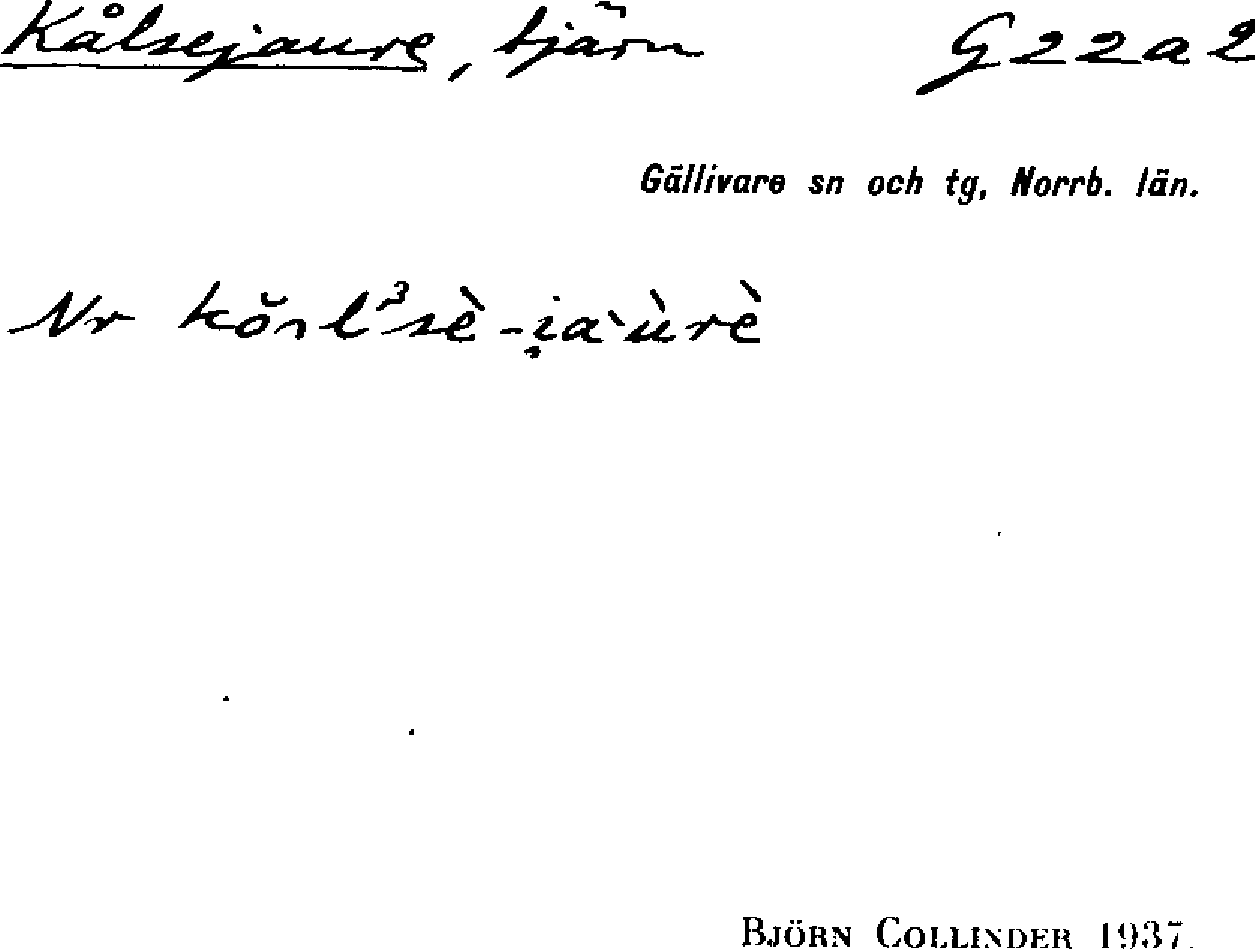 Kålsejaure, tjärn G22a2
Gällivare sn och tg, Norrb. län.
Nr kŏnl³sè-i̯a`ùrè
BJÖRN COLLINDER 1937.